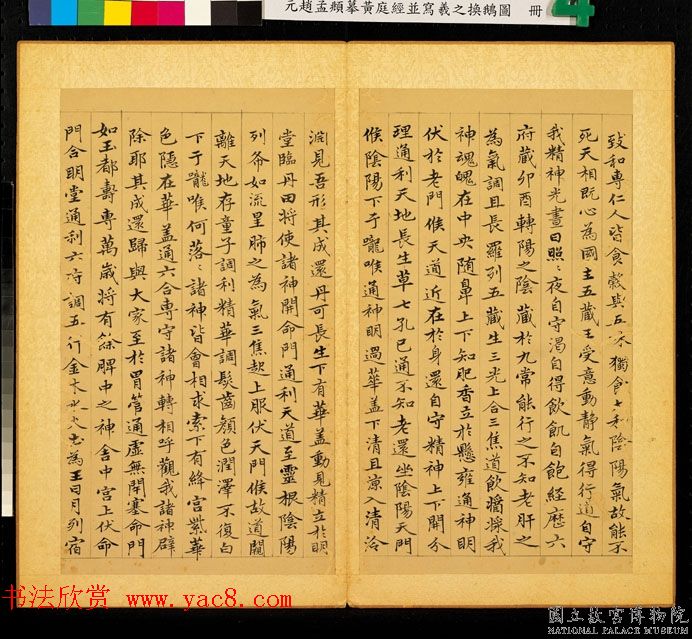 元趙孟頫摹黃庭經並寫羲之換鵝圖 冊
致和專仁人皆食穀與五味獨食太和陰陽氣故能不
死天相既心為國主五藏王受意動靜氣得行道自守
我精神光晝日照〻夜自守渴自得飲飢自飽經歷六
府藏卯酉轉陽之陰藏於九常能行之不知老肝之
為氣調且長羅列五藏生三光上合三焦道飲醬漿我
神魂魄在中央随鼻上下知肥香立於懸雍通神明
伏於老門候天道近在於身還自守精神上下開分
理通利天地長生草七孔已通不知老還坐陰陽天門
候陰陽下于嚨喉通神明過華蓋下清且涼入清泠
淵見吾形其成還丹可長生下有華蓋動見精立於明
堂臨丹田將使諸神開命門通利天道至靈根陰陽
列布如流星肺之為氣三焦起上服伏天門候故道闚
離天地存童子調利精華調髮齒顏色潤澤不復白
下于嚨喉何落〻諸神皆會相求索下有絳宮紫華
色隱在華蓋通六合專守諸神轉相呼觀我諸神辟
除耶其成還歸與大家至於胃管通虛無閉塞命門
如玉都壽專萬歲將有餘脾中之神舍中宮上伏命
門合明堂通利六府調五行金木水火土為王日月列宿
书法欣赏 www.yac8.com
國立故宮博物院
NATIONAL PALACE MUSEUM